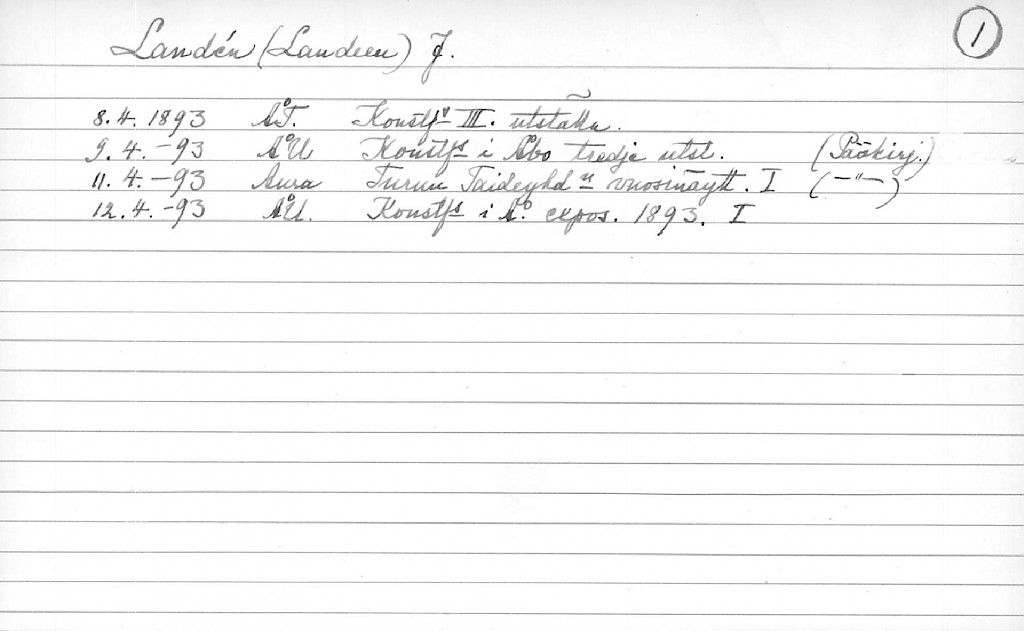 Landén (Landeen) J. 1
8.4. 1893 Å.T. Konstf. III. utställn.
9.4. -93 ÅU Konstfs i Åbo tredje utst. (Pääkirj.)
11.4. -93 Aura Turun Taideyhd n vuosinäytt. I (-"-)
12.4. -93 ÅU. Konstfs i Å. expos. 1893. I